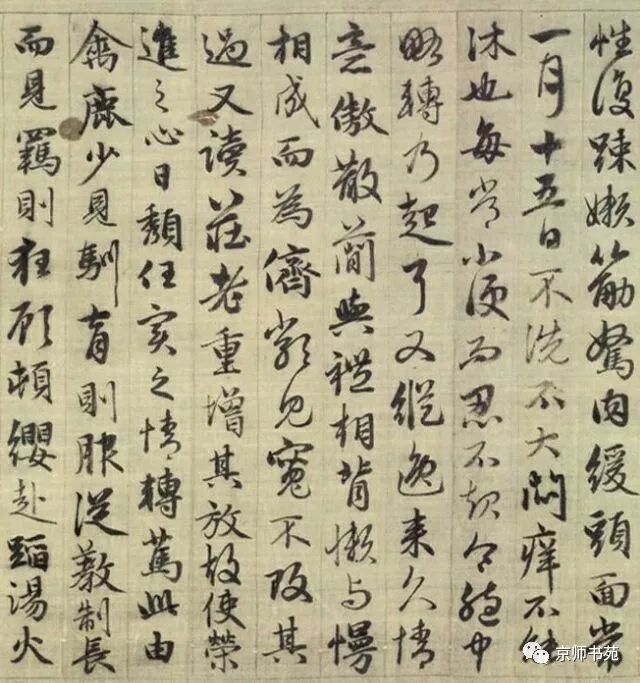 性復踈嬾筋駑肉緩頭面常
一月十五日不洗不大悶痒不能
沐也每常小便而忍不起令胞中
略轉乃起耳又縱逸来久情
意傲散簡與禮相背懶与慢
相成而為儕類見寬不攻其
過又讀莊老重增其放故使榮
進之心日頹任實之情轉篤此由
禽鹿少見馴育則服從教制長
而見羈則狂顧頓纓赴蹈湯火
京师书苑